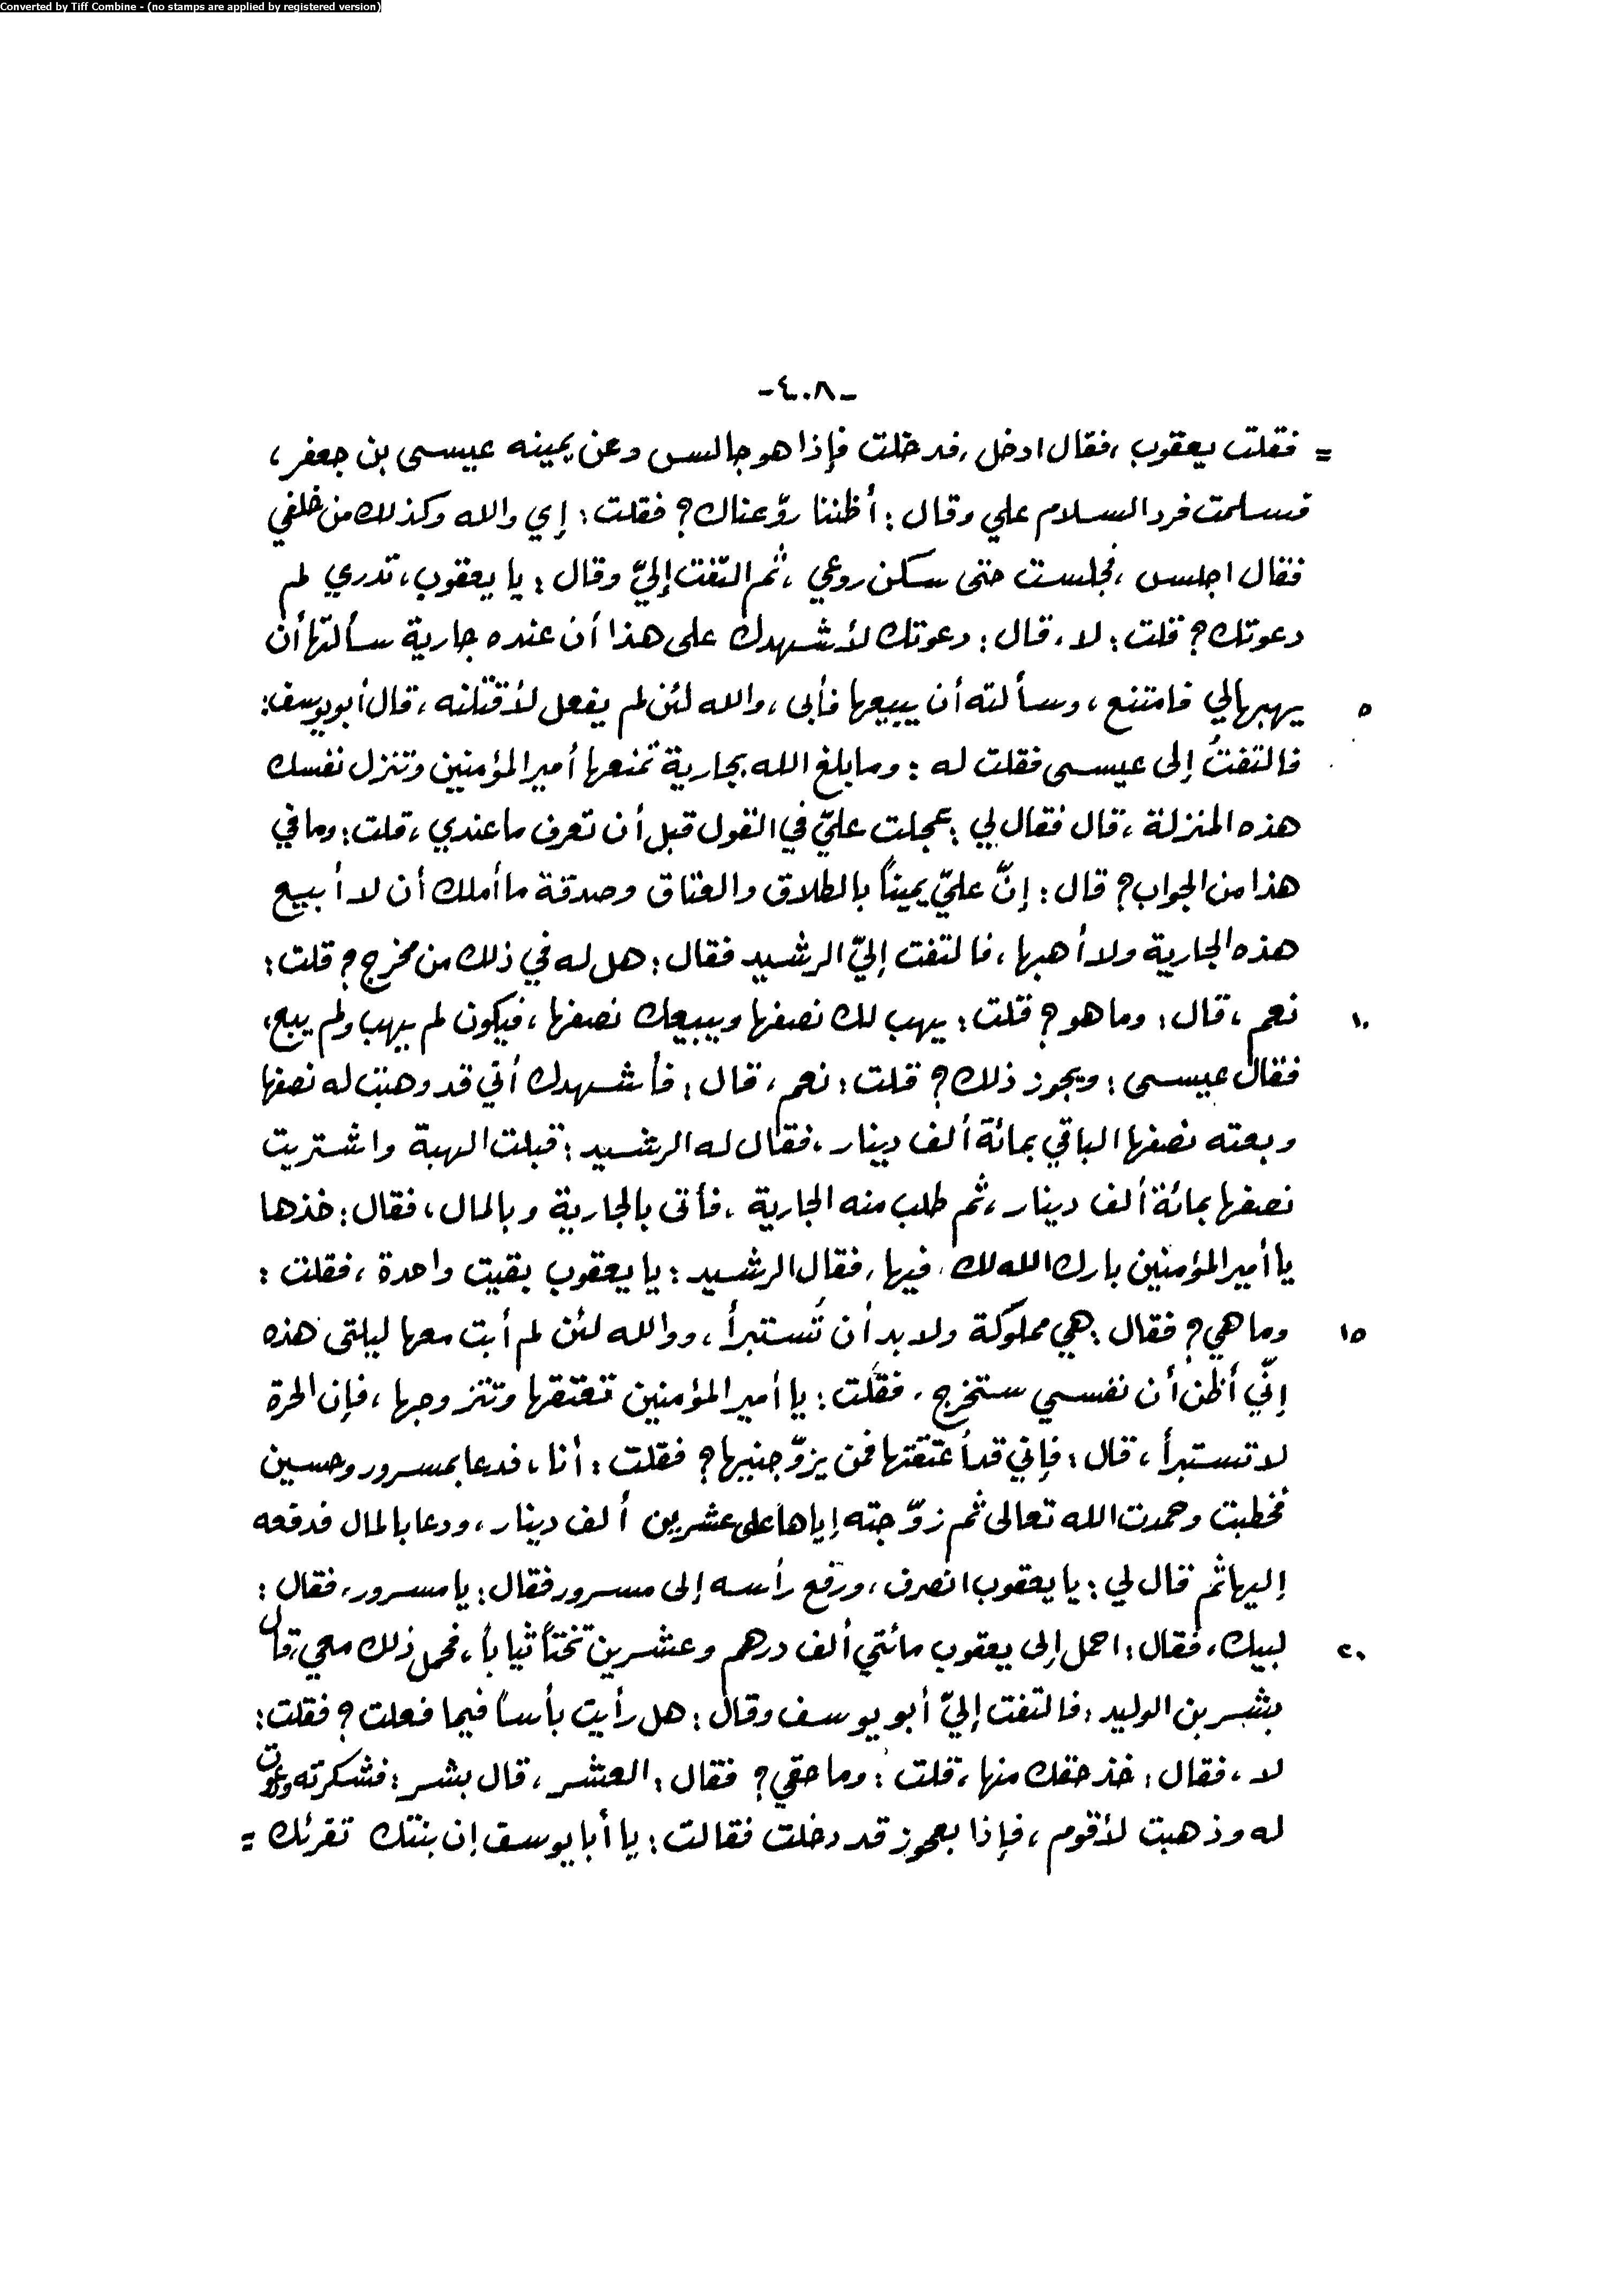 Converted by Tiff Combine - (no stamps are applied by registered version)
-٤٠٨-
= فقلت يعقوب ، فقال ادخل ، فدخلت فإذا هو جالس وعن يمينه عيسى بن جعفر ،
فسلمت فرد السلام علي وقال : أظننا روّعناك ؟ فقلت : إي والله وكذلك من خلفي
فقال اجلس ، فجلست حتى سكن روعي ، ثم التفت إليّ وقال : يا يعقوب ، تدري لم
دعوتك ؟ قلت : لا ، قال : دعوتك لأشهدك على هذا أن عنده جارية سألتها أن
يهبها لي فامتنع ، وسألته أن يبيعها فأبى ، والله لئن لم يفعل لأقتلنه ، قال أبو يوسف : ٥
فالتفتُ إلى عيسى فقلت له : وما بلغ الله بجارية تمنعها أمير المؤمنين وتنزل نفسك
هذه المنزلة ، قال فقال لي : عجلت عليّ في القول قبل أن تعرف ما عندي ، قلت : وما في
هذا من الجواب ؟ قال : إنّ عليّ يميناً بالطلاق والعتاق وصدقة ما أملك أن لا أبيع
هذه الجارية ولا أهبها ، فالتفت إليّ الرشيد فقال : هل له في ذلك من مخرج ؟ قلت :
نعم ، قال : وما هو ؟ قلت : يهب لك نصفها ويبيعك نصفها ، فيكون لم يهب ولم يبع ، ١٠
فقال عيسى : ويجوز ذلك ؟ قلت : نعم ، قال : فأشهدك أني قد وهبت له نصفها
وبعته نصفها الباقي بمائة ألف دينار ، فقال له الرشيد : قبلت الهبة واشتريت
نصفها بمائة ألف دينار ، ثم طلب منه الجارية ، فأتى بالجارية وبالمال ، فقال : خذها
يا أمير المؤمنين بارك الله لك فيها ، فقال الرشيد : يا يعقوب بقيت واحدة ، فقلت :
وما هي ؟ فقال : هي مملوكة ولا بد أن تُستبرأ ، ووالله لئن لم أبت معها ليلتى هذه ١٥
إنّي أظن أن نفسي ستخرج ، فقلت : يا أمير المؤمنين تعتقها وتتزوجها ، فإن الحرة
لا تستبرأ ، قال : فإني قد أعتقتها فمن يزوّجنيها ؟ فقلت : أنا ، فدعا بمسرور وحسين
فخطبت وحمدت الله تعالى ثم زوّجته إياها على عشرين ألف دينار ، ودعا بالمال فدفعه
إليها ثم قال لي : يا يعقوب انصرف ، ورفع رأسه إلى مسرور فقال : يا مسرور ، فقال :
لبيك ، فقال : احمل إلى يعقوب مائتي ألف درهم وعشرين تختاً ثياباً ، فحمل ذلك معي ، قال ٢٠
بشر بن الوليد : فالتفت إليّ أبو يوسف وقال : هل رأيت بأساً فيما فعلت ؟ فقلت :
لا ، فقال : خذ حقك منها ، قلت : وما حقي ؟ فقال : العشر ، قال بشر : فشكرته ودعوت
له وذهبت لأقوم ، فإذا بعجوز قد دخلت فقالت : يا أبا يوسف إن بنتك تقرئك =